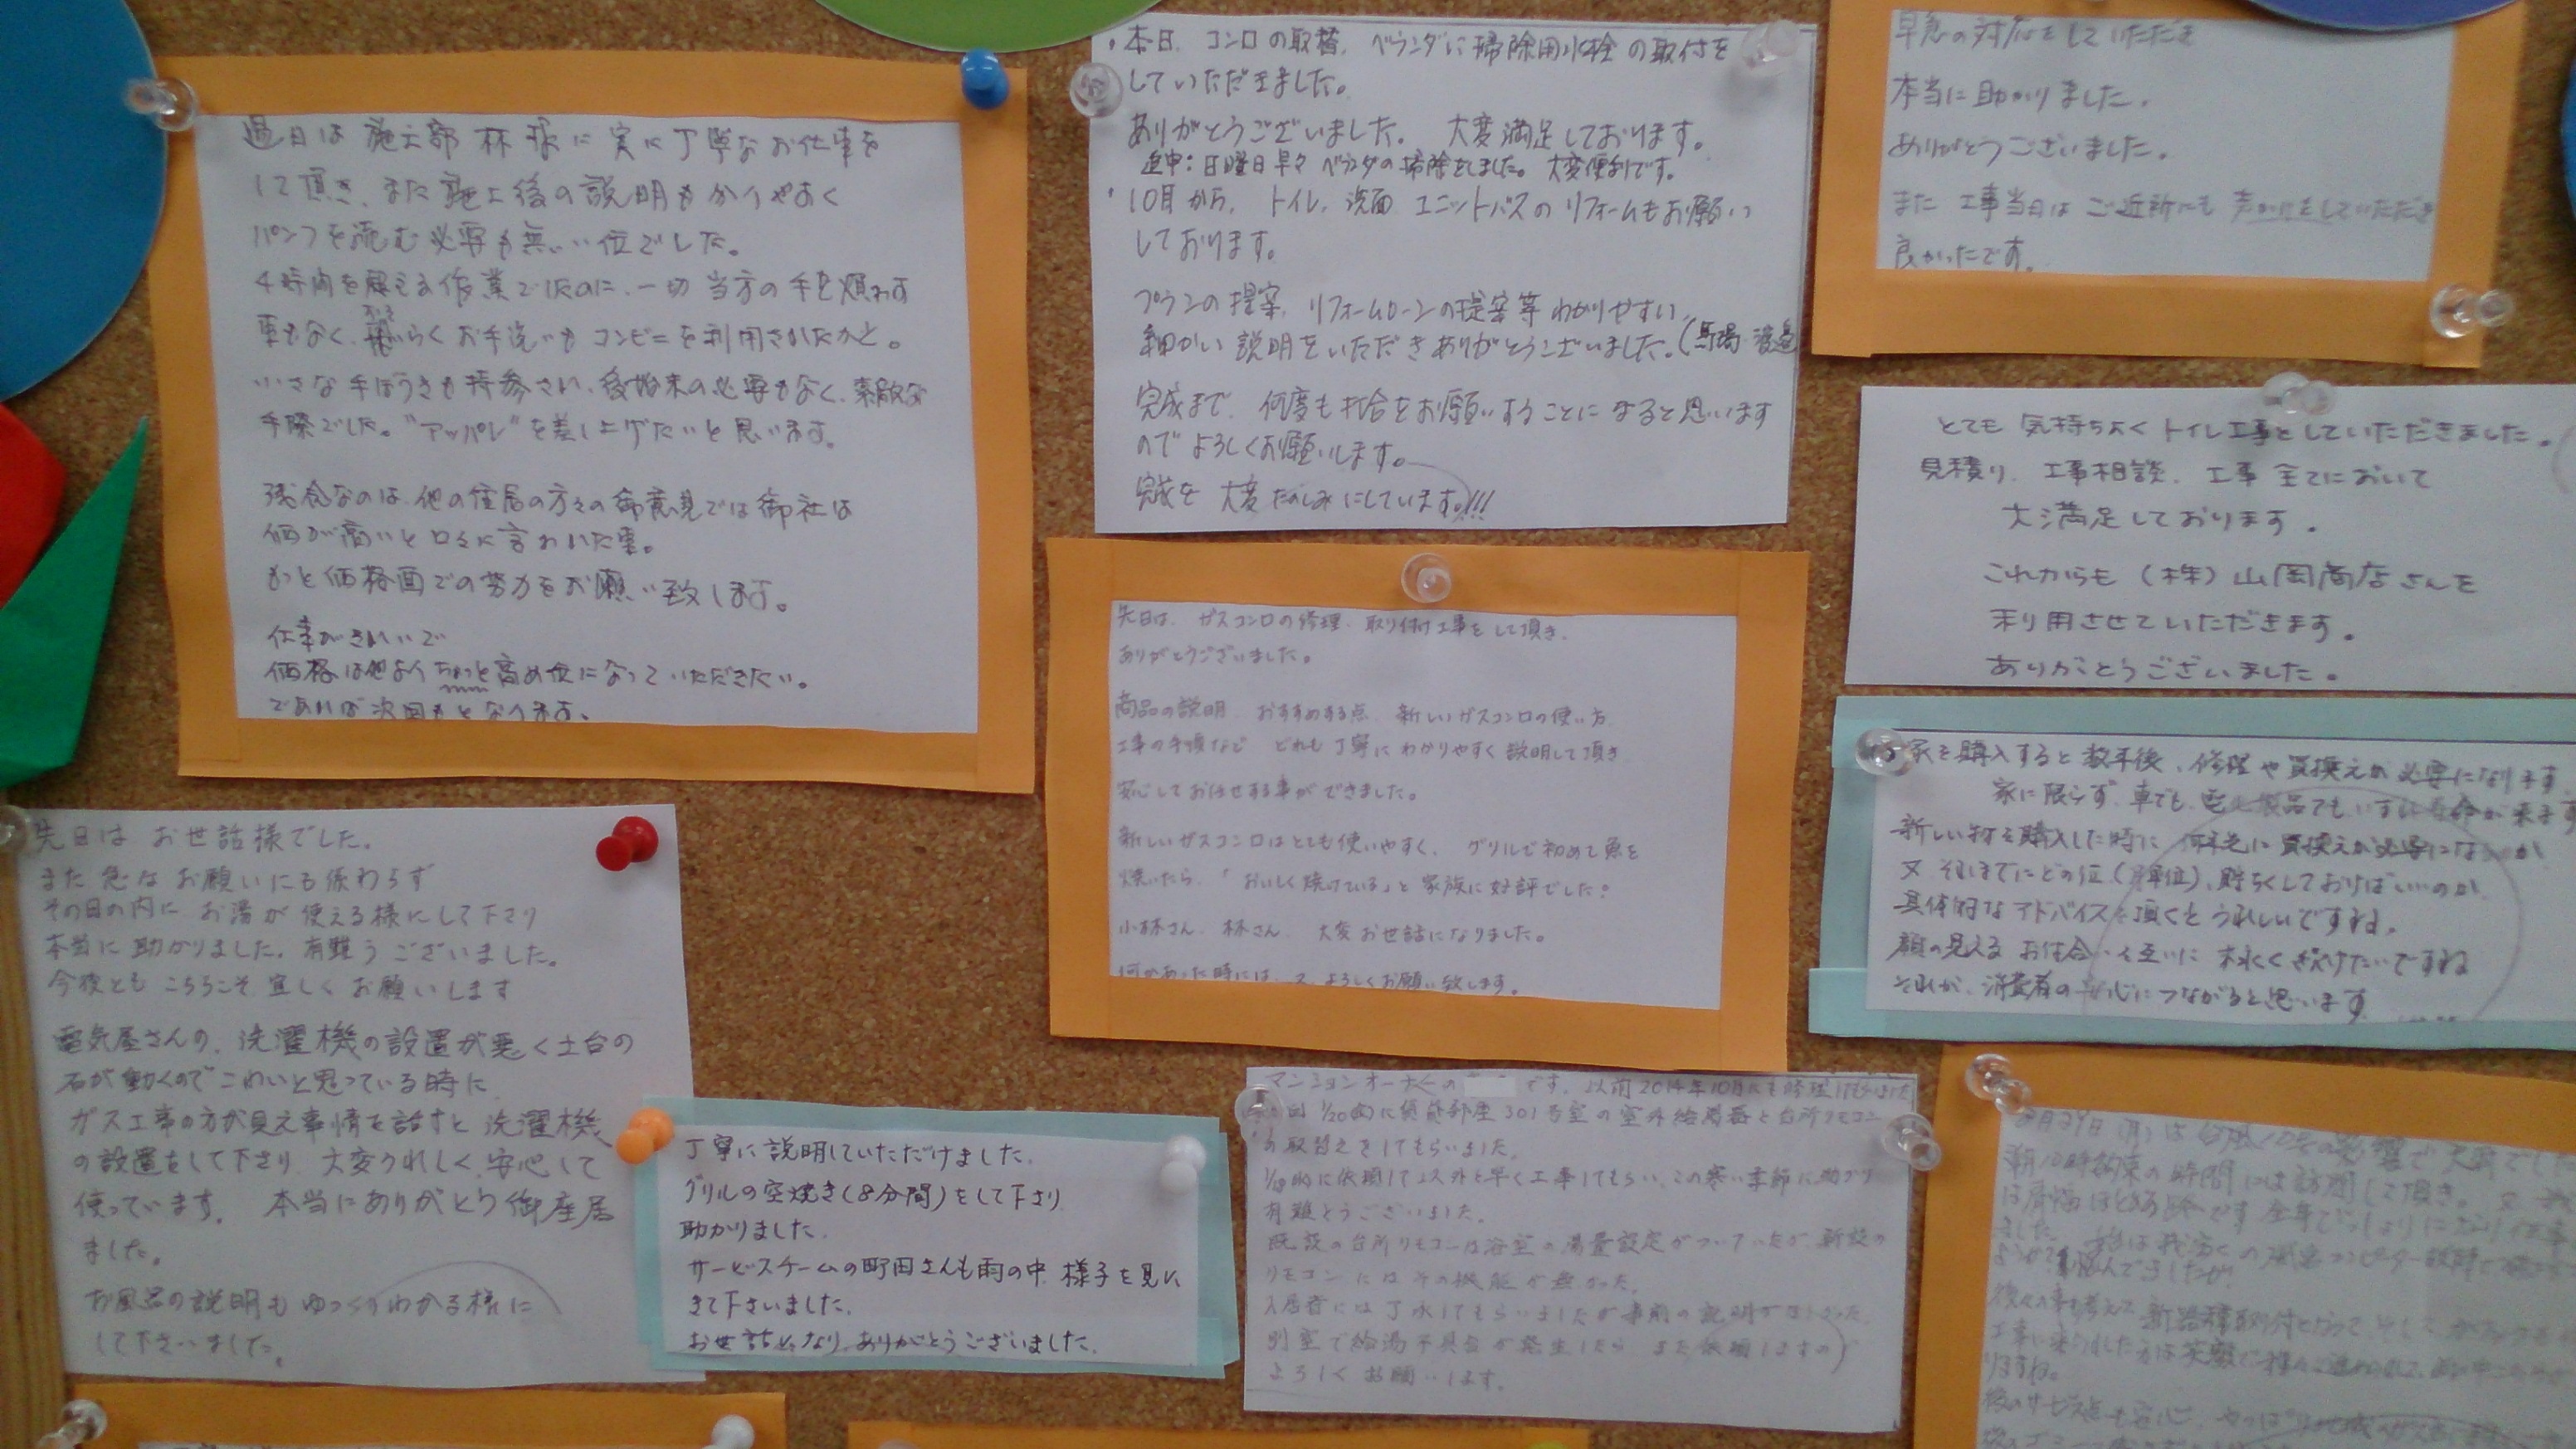 過日は施工部 林様に実に丁寧なお仕事を
して頂き、また施工後の説明も分りやすく
パンフを読む必要も無い位でした。
4時間を超える作業でしたのに、一切当方の手を煩わす
事もなく、恐らくお手洗いもコンビニを利用されたかと。
小さな手ぼうきも持参され、後始末の必要もなく、素敵な
手際でした。"アッパレ"を差し上げたいと思います。
残念なのは、他の住居の方々の御意見では御社は
価が高いと口々に言われた事。
もっと価格面での努力をお願い致します。
仕事がきれいで
価格は他よりちょっと高め位になっていただきたい。
であれば次回もとなります。
・本日、コンロの取替、ベランダに掃除用水栓の取付を
していただきました。
ありがとうございました。 大変満足しております。
追申:日曜日早々ベランダの掃除をしました。大変便利です。
・10月から、トイレ、洗面 ユニットバスのリフォームもお願い
しております。
プランの提案、リフォームローンの提案等わかりやすい、
細かい説明をいただきありがとうございました。(馬場 渡邉
完成まで、何度も打合をお願いすることになると思います
のでよろしくお願いします。
完成を大変たのしみにしています。!!!
早急の対応をしていただき
本当に助かりました。
ありがとうございました。
また 工事当日は ご近所にも 声かけをしていただき
良かったです。
とても気持ちよくトイレ工事をしていただきました。
見積り、工事相談、工事 全てにおいて
大満足しております。
これからも (株)山岡商店さんを
利用させていただきます。
ありがとうございました。
先日は、ガスコンロの修理、取り付け工事をして頂き、
ありがとうございました。
商品の説明、おすすめする点、新しいガスコンロの使い方、
工事の手順など どれも丁寧にわかりやすく説明して頂き
安心してお任せする事ができました。
新しいガスコンロはとても使いやすく、グリルで初めて魚を
焼いたら、「おいしく焼けている」と家族に好評でした!
小林さん、林さん、大変お世話になりました。
何かあった時には、又、よろしくお願い致します。
家を購入すると数年後、修理や買換えが必要になります
家に限らず、車でも、電化製品でもいずれ寿命が来ます
新しい物を購入した時に 何年先に買換えが必要になるか
又、それまでにどの位(単位)、貯ちくしておけばいいのか
具体的なアドバイスを頂くとうれしいですね。
顔の見えるお付合いを互いに末永く続けたいですね
それが、消費者の安心につながると思います
先日は お世話様でした。
また 急な お願いにも係わらず
その日の内に お湯が 使える様にして下さり
本当に 助かりました。有難うございました。
今後とも こちらこそ 宜しく お願いします
電気屋さんの、洗濯機の設置が悪く土台の
石が動くのでこわいと思っている時に
ガス工事の方が見え事情を話すと洗濯機
の設置をして下さり、大変うれしく、安心して
使っています。 本当にありがとう御座居
ました。
お風呂の説明も ゆっくりわかる様に
して下さいました。
丁寧に説明していただけました。
グリルの空焼き(8分間)をして下さり
助かりました。
サービスチームの町田さんも雨の中、様子を見に
きて下さいました。
お世話になり、ありがとうございました。
マンションオーナーの です。以前2014年10月にも修理してもらいました
回 1/20 に賃貸部屋301号室の室外給湯器と台所リモコン
の取替えをしてもらいました。
に依頼して以外と早く工事してもらい、この寒い季節に助かり
有難とうございました。
既設の台所リモコンは浴室の湯量設定がついていたが、新設の
リモコンにはその機能が無かった。
入居者には了承してもらいましたが事前の説明がほしかった。
別室で給湯不具合が発生したら また依頼しますので
よろしくお願いします。
8月29日(月)は台風10号の影響で大雨でした
朝10時約束の時間には訪問して頂き、